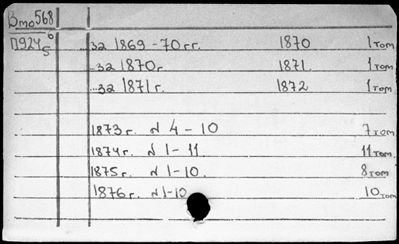 Вто568
П924 5
...за 1869-70 гг. 1870 1 том
...за 1870г. 1871. 1 том
...за 1871г. 1872 1 том
1873г. № 4-10 7 том
1874г. № 1-11 11 том.
1875г. № 1-10. 8 том
1876г. № 1-10 10 том